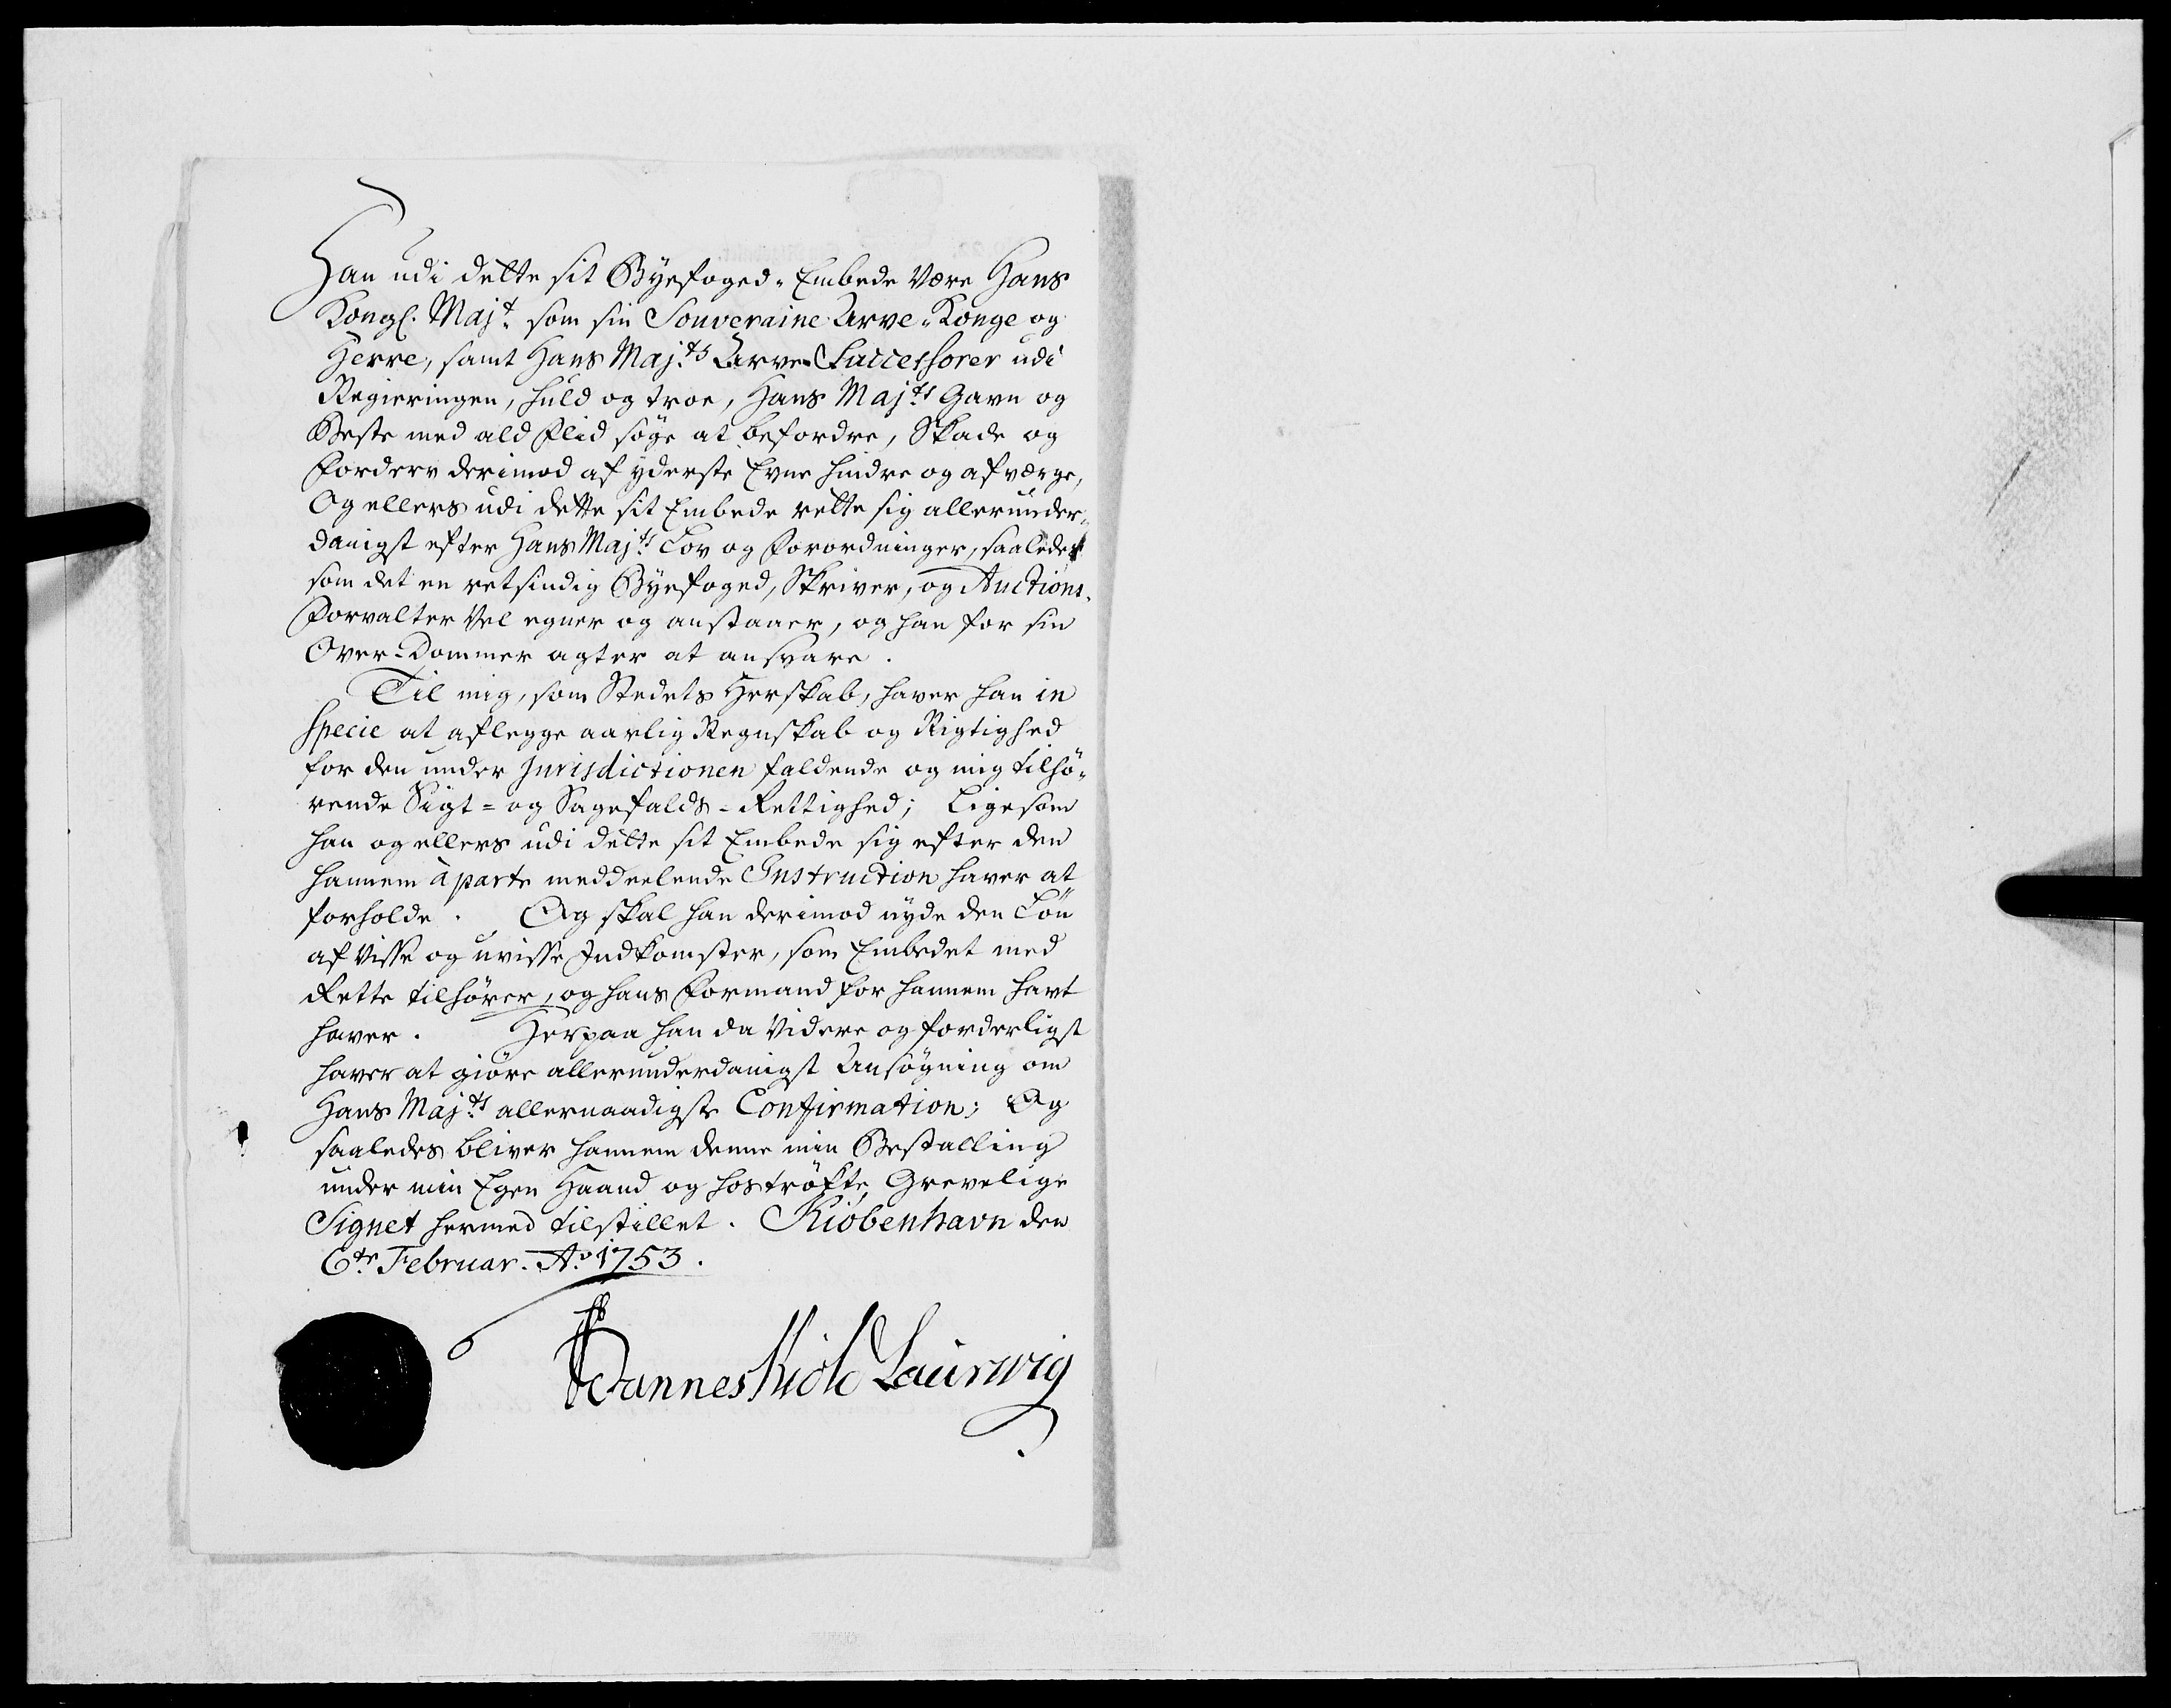 Han udi dette sit Byefoged-Embede være Hans
Kongl. Majt. som sin Souveraine Arve-Konge og
Herre, samt Hans Majts. Arve-Successorer udi
Regieringen, huld og troe, Hans Majts. Gavn og
Beste med ald Flid söge at befordre, Skade og
Forderv derimod af yderste Evne hindre og afværge,
Og ellers udi dette sit Embede rette sig allerunder-
danigst efter Hans Majts. Lov og Forordninger, saaledes
som det en retsindig Byefoged, Skriver, og Auctions-
Forvalter vel egner og anstaaer, og han for sin
Over-Dommer agter at ansvare.
Til mig, som Stedets Herskab, haver han in
specie at aflegge aarlig Regnskab og Rigtighed
for den under Jurisdictionen faldende og mig tilhö-
rende Sigt- og Sagefalds-Rettighed; Ligesom
han og ellers udi dette sit Embede sig efter den
hannem à parte meddeelende Instruction haver at
forholde. Og skal han derimod nyde den Lön
af visse og uvisse Indkomster, som Embedet med
Rette tilhörer, og hans Formand for hannem havt
haver. Herpaa han da videre og forderligst
haver at giöre allerunderdanigst Ansögning om
Hans Majts. allernaadigste Confirmation; Og
saaledes bliver hannem denne min Bestalling
under min Egen Haand og hoströkte Grevelige
Signet hermed tilstillet. Kiöbenhavn den
6te Februar. Ao. 1753.
Danneskiold Laurwig